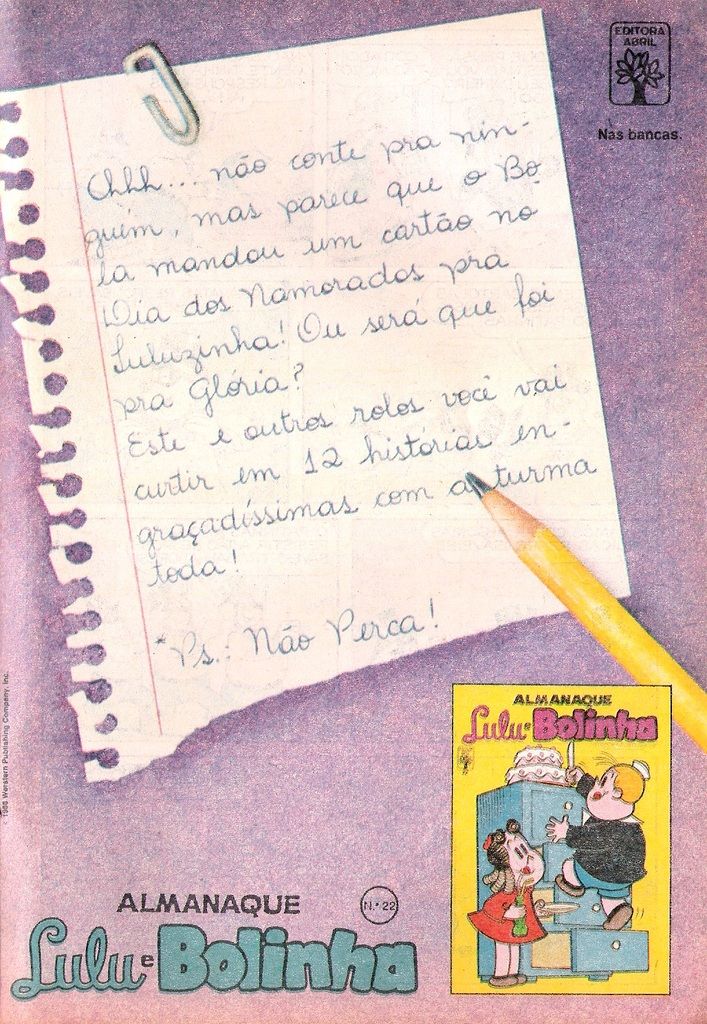 EDITORA
ABRIL
Nas bancas.
Ohhh... não conte pra nin-
guém, mas parece que o Bo
la mandou um cartão no
Dia dos Namorados pra
Luluzinha! Ou será que foi
pra Glória?
Este e outros rolos você vai
curtir em 12 histórias en-
graçadíssimas com a turma
toda!
*Ps.: Não Perca!
ALMANAQUE
Lulu e Bolinha
ALMANAQUE N.º 22
Lulu e Bolinha
Western Publishing Company, Inc.